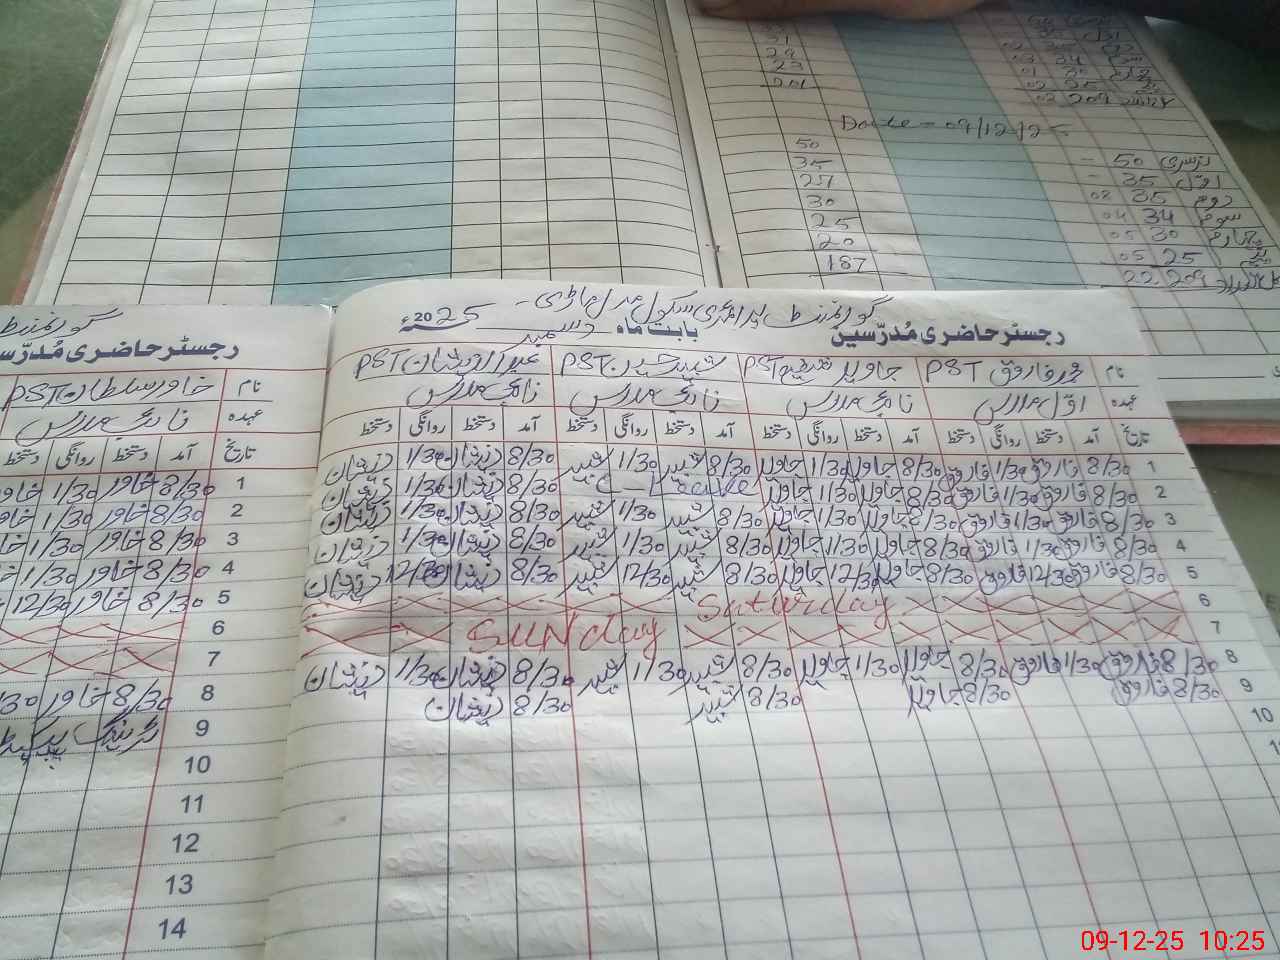 21
29
23
201
02 35 دوم
03 34 سوم
01 30 چہارم
02 25
02 209
Date = 09/12/25
50 - 50 نرسری
35 - 35 اول
27 02 35 دوم
30 04 34 سوم
25 05 30 چہارم
20 05 25
187 22 209
گورنمنٹ پرائمری سکول
رجسٹر حاضری مُدرّسین بابت ماہ دسمبر 2025ء
نام عمر فاروق PST جاوید PST شبیر حسین PST PST
عہدہ اول مدرس نائب مدرس نائب مدرس نائب مدرس
تاریخ آمد دستخط روانگی دستخط آمد دستخط روانگی دستخط آمد دستخط روانگی دستخط آمد دستخط روانگی دستخط
1 8/30 فاروق 1/30 فاروق 8/30 جاوید 1/30 جاوید 8/30 شبیر 1/30 شبیر 8/30 ذیشان 1/30 ذیشان
2 8/30 فاروق 1/30 فاروق 8/30 جاوید 1/30 جاوید C-Leave 8/30 ذیشان 1/30 ذیشان
3 8/30 فاروق 1/30 فاروق 8/30 جاوید 1/30 جاوید 8/30 شبیر 1/30 شبیر 8/30 ذیشان 1/30 ذیشان
4 8/30 فاروق 1/30 فاروق 8/30 جاوید 1/30 جاوید 8/30 شبیر 1/30 شبیر 8/30 ذیشان 1/30 ذیشان
5 8/30 فاروق 12/30 فاروق 8/30 جاوید 12/30 جاوید 8/30 شبیر 12/30 شبیر 8/30 ذیشان 12/30 ذیشان
6 Saturday
7 SUNday
8 8/30 فاروق 1/30 فاروق 8/30 جاوید 1/30 جاوید 8/30 شبیر 1/30 شبیر 8/30 ذیشان 1/30 ذیشان
9 8/30 فاروق 8/30 جاوید 8/30 شبیر 8/30 ذیشان
10
گورنمنٹ
رجسٹر حاضری مُدرّس
نام خاور سلطان PST
عہدہ نائب مدرس
تاریخ آمد دستخط روانگی دستخط
1 8/30 خاور 1/30 خاور
2 8/30 خاور 1/30
3 8/30 خاور 1/30
4 8/30 خاور 1/30
5 8/30 خاور 12/30
6
7
8 8/30 خاور
9 ٹریننگ
10
11
12
13
14
09-12-25 10:25